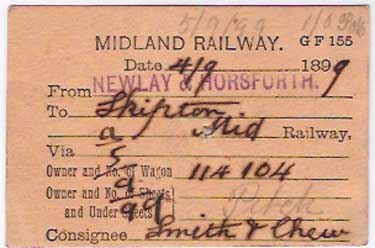 5/9/99
MIDLAND RAILWAY. G F 155
Date 4/9 1899
From NEWLAY & HORSFORTH.
To Skipton
a Mid Railway,
Via 5
Owner and No. of Wagon 114104
9
Owner and No. of Sheets
and Under Sheets 99
Consignee Smith & Chew